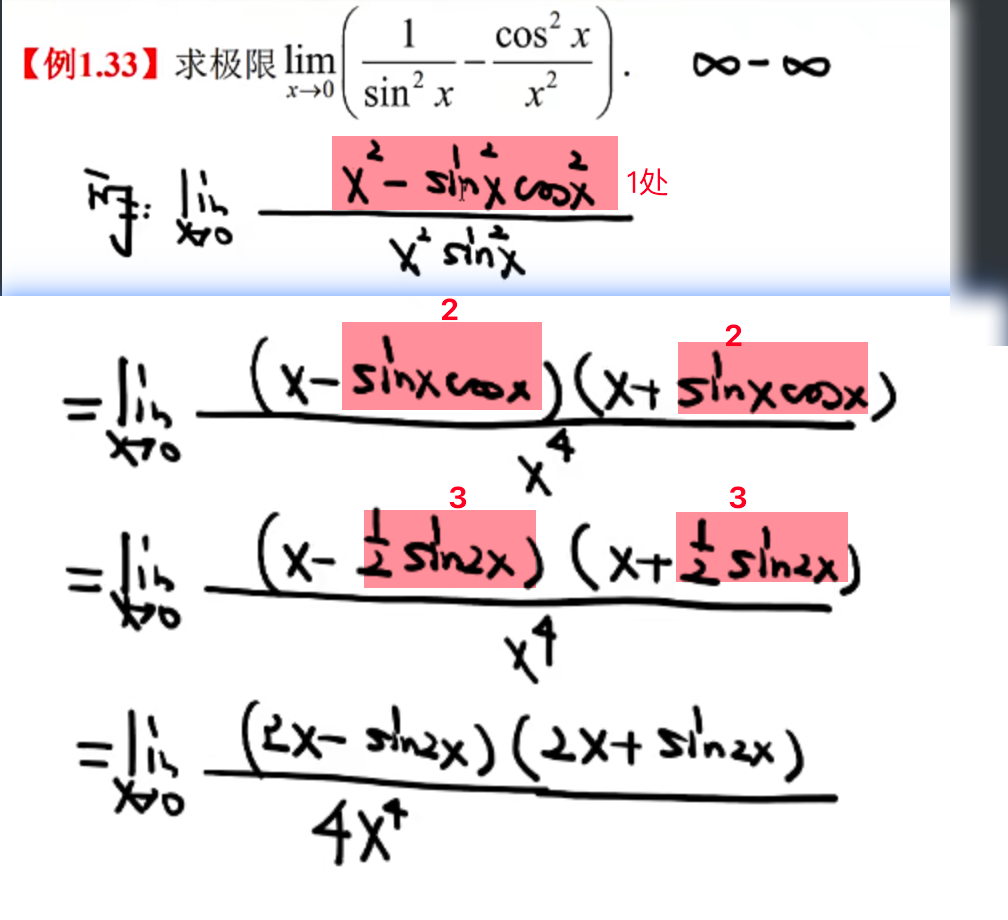 【例1.33】求极限 lim_{x→0} (1/sin² x − cos² x/x²). ∞-∞
原: lim_{x→0} (x² - sin²x cos²x)/(x² sin²x) 1处
2 2
= lim_{x→0} (x - sinx cosx)(x + sinx cosx)/x⁴
3 3
= lim_{x→0} (x - 1/2 sin2x)(x + 1/2 sin2x)/x⁴
= lim_{x→0} (2x - sin2x)(2x + sin2x)/4x⁴